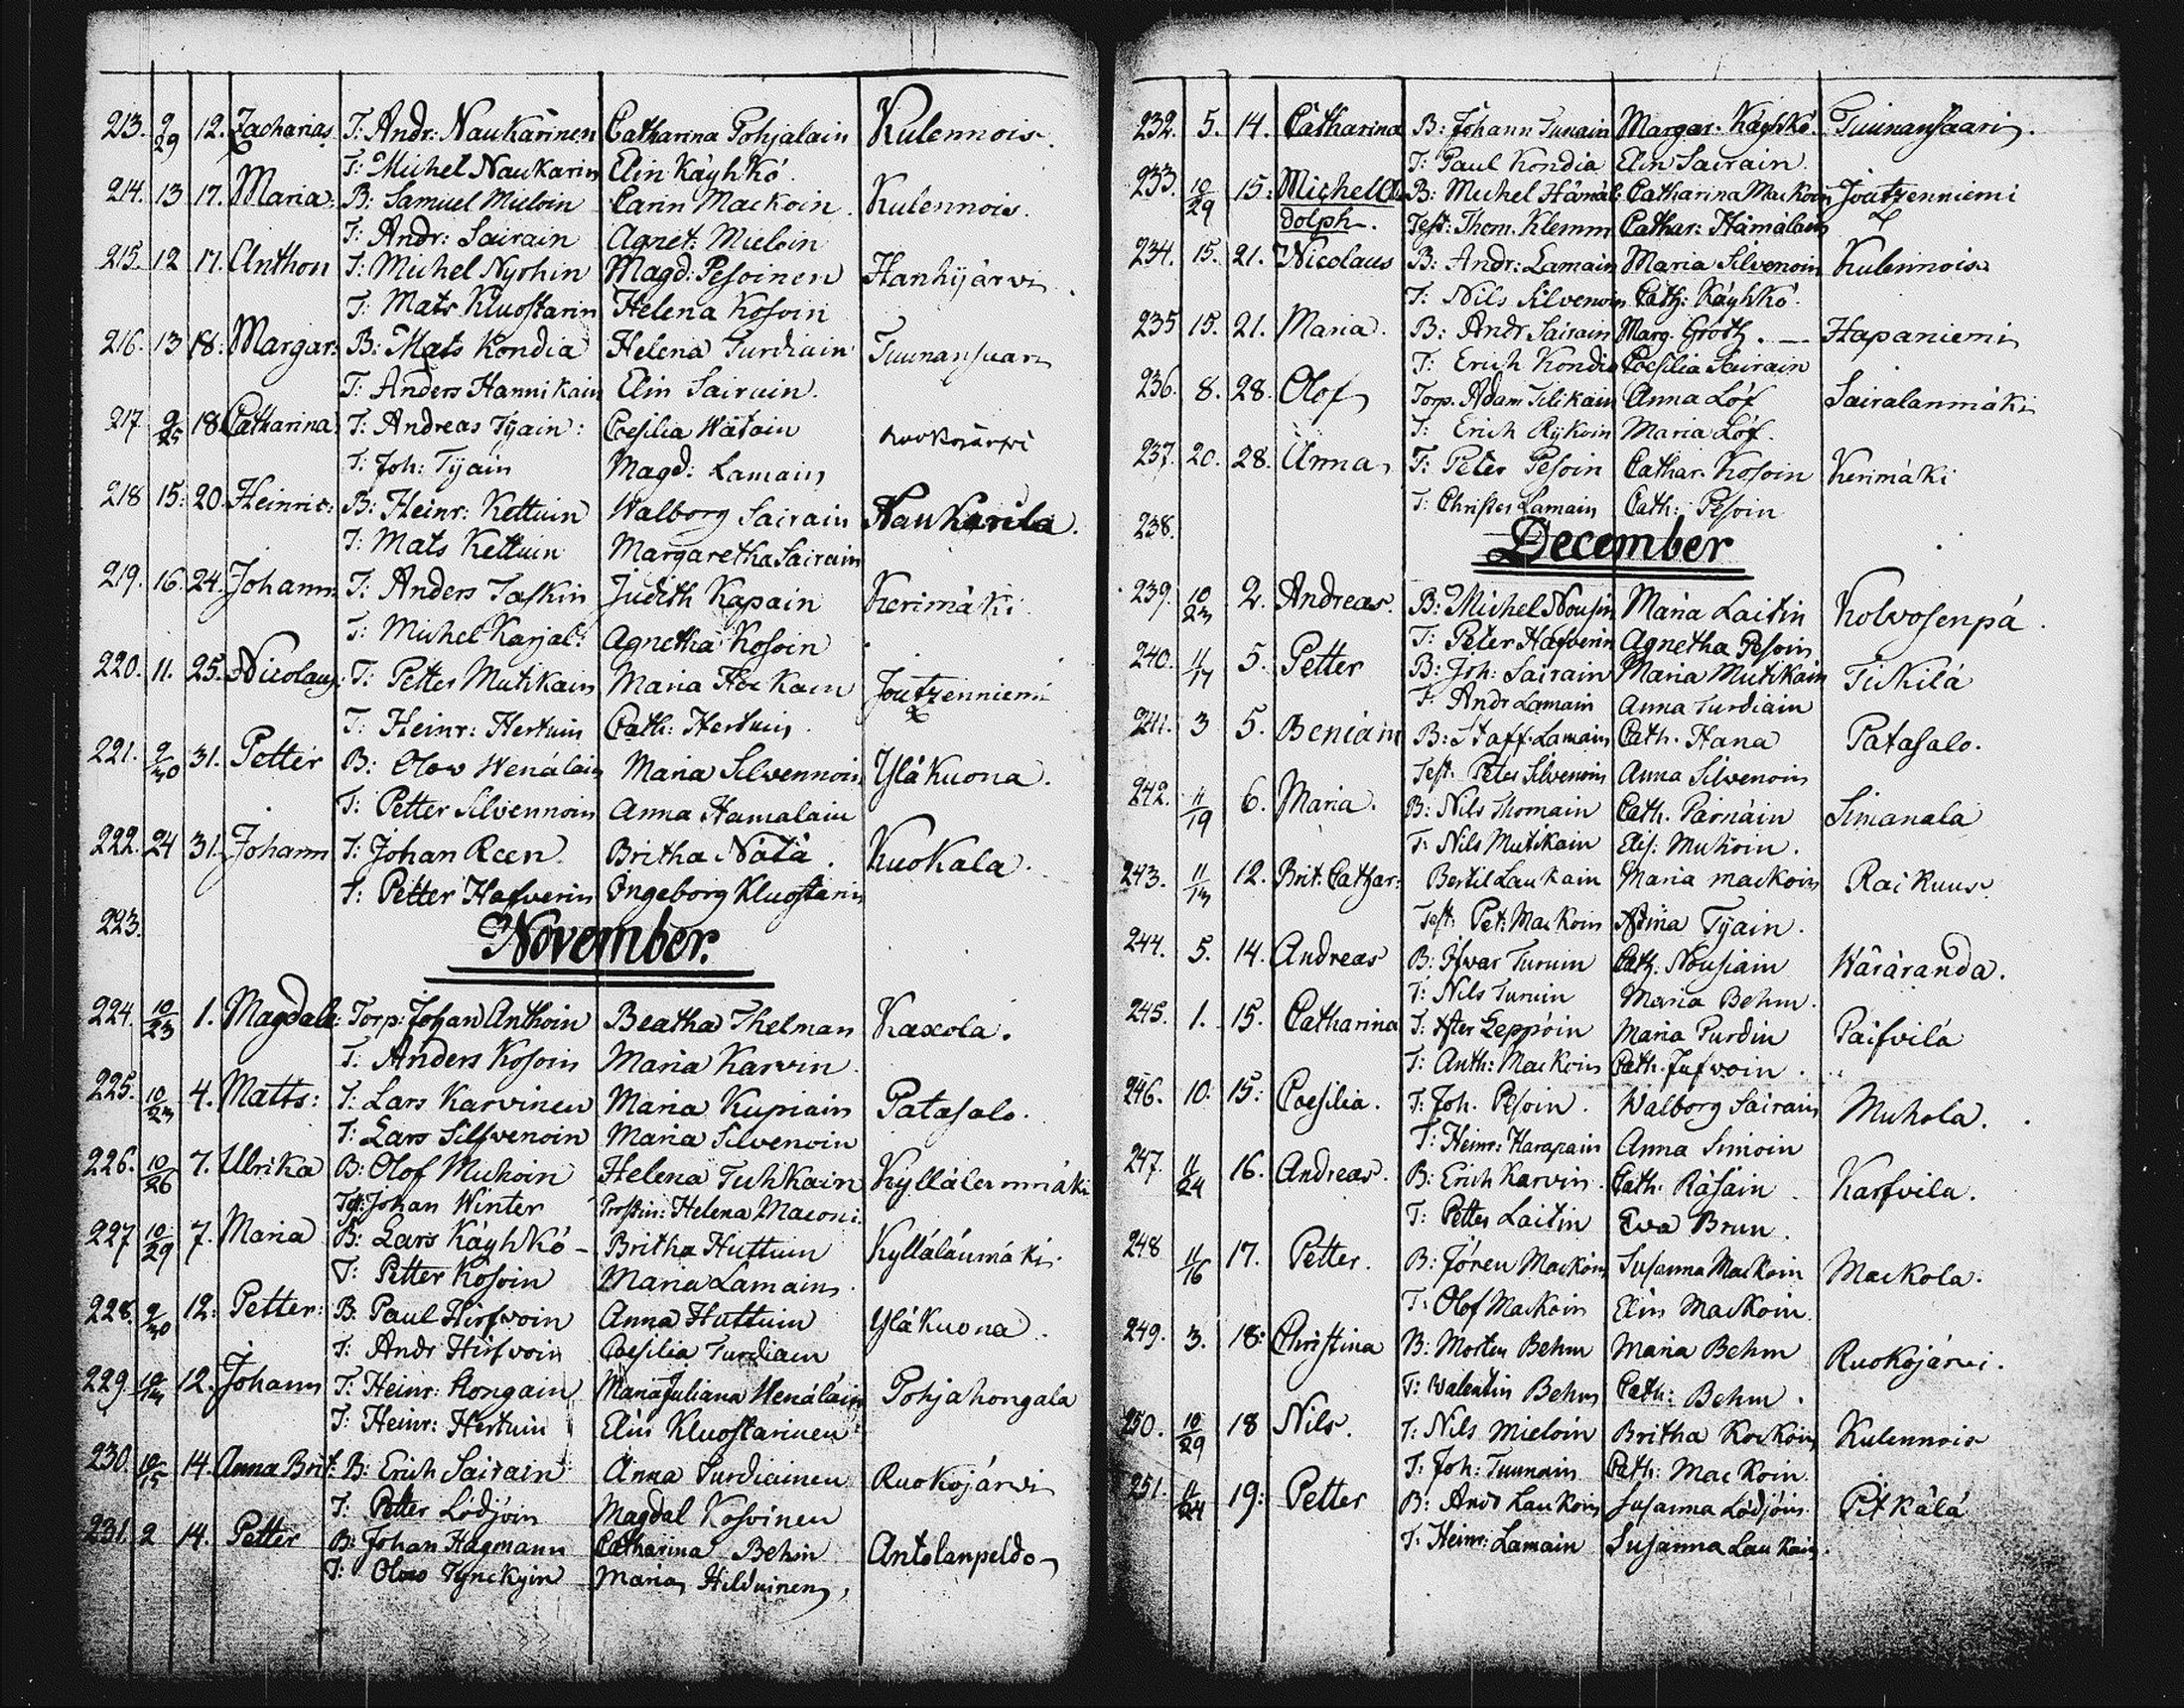 213. 9/29 12. Zacharias. T: Andr: Naukarinen Catharina Pohjalain Kulennois.
T: Michel Naukarin Elin Käyhkö.
214. 13 17. Maria: B: Samuel Mieloin Carin Mackoin. Kulennois.
T: Andr: Sairain Agnet: Mieloin
215. 12 17. Anthon T: Michel Nyrhin Magd: Pesoinen Hanhijärvi
T: Mats Kluostarin Helena Kosoin
216. 13 18. Margar: B: Mats Kondia Helena Turdiain Tuunansuari
T: Anders Hannikain Elin Sairain.
217. 9/25 18 Catharina T: Andreas Tyäin: Coesilia Wätäin Ruokojärwi
T: Joh: Tyäin Magd: Lamain
218 15: 20. Heinric: B: Heinr: Kettuin Walborg Sairain Naukarila.
T: Mats Kettuin Margaretha Sairain
219. 16. 24. Johann T: Anders Taskin Judith Kapain Kerimäki
T: Michel Karjal: Agnetha Kosoin
220. 11. 25. Nicolaus. T: Petter Mutikain Maria Hockain Joutzenniemi
T: Heinr: Hertuin Cath: Hertuin.
221. 9/30 31. Petter B: Olow Wenäläin Maria Silvennoin Yläkuona.
T: Petter Silvennoin Anna Hamalain
222. 24 31. Johann T: Johan Reen. Britha Nätä. Kuokala.
T: Petter Hafverin Ingeborg Kluostarin
223.
November.
224. 10/23 1. Magdale: Torp: Johan Anthoin Beatha Thelman Kaxola.
T. Anders Kosoin Maria Karvin.
225. 10/23 4. Matts: T: Lars Karvinen Maria Kupiain Patasalo.
T: Lars Silfvenoin Maria Silvenoin
226. 10/26 7. Ulrika B: Olof Muhoin Helena Tuhkain Kylläleinmäki
Test: Johan Winter Prostin: Helena Maconi.
227 10/29 7. Maria B: Lars Käyhkö - Britha Huttuin Kylläläumäki.
T: Petter Kosoin Maria Lamain.
228. 9/30 12: Petter: B. Paul Hirfvoin Anna Huttuin Yläkuona.
T: Andr Hirfvoin Coesilia Turdiain
229. 12. Johann T: Heinr: Kongain Maria Juliana Wenäläin Pohjahongala
T: Heinr: Hertuin Elin Kluostarinen
230. 10/15 14. Anna Brit: B: Erich Sairain Anna Turdiainen Ruokojärvi
T: Petter Lödjöin Magdal Kosoinen
231. 2 14. Petter B: Johan Hagmann Catharina Behm Antolanpeldo
T: Olow Tynckyin Maria Hilduinen,
232. 5. 14. Catharina B: Johann Tunain Margar: Käyhkö. Tuunansaari.
T: Paul Kondia Elin Sairain.
233. 10/29 15: Michel A B: Michel Hämäl: Catharina Mackoin Joutzenniemi
dolph. Test: Thom. Klemm Cathar: Hämäläin
234. 15. 21. Nicolaus B: Andr: Lamain Maria Silvenoin Kulennois
T: Nils Silvenoin Cath: Käyhkö.
235 15. 21. Maria. B: Andr Sairain Marg. Groth. - Hapaniemi
T: Erich Kondia Coesilia Sairain
236. 8. 28. Olof Torp. Adam Tilikain Anna Löf Sairalanmäki
T: Erich Rykoin Maria Löf.
237. 20. 28. Anna T: Peter Pesoin Cathar. Kosoin Kerimäki
T: Christer Lamain Cath: Pesoin
238.
December
239. 10/23 2. Andreas. B: Michel Nousin Maria Laitin Kolvosenpä.
T: Peter Hafverin Agnetha Pesoin
240. 11/17 5. Petter B: Joh: Sairain Maria Mutikain Tickilä
T: Andr Lamain Anna Turdiain
241. 3 5. Beniam B: Staff. Lamain Cath. Hana Patasalo.
Test. Peter Silvenoin Anna Silvenoin
242. 11/19 6. Maria. B: Nils Thomain Cath. Pärnäin Simanala
T: Nils Mutikain Elis: Muhoin.
243. 11/13 12. Brit: Cathar: Bertil Laukain Maria Mackoin Raikuus
Test: Pet: Mackoin Anna Tyäin.
244. 5. 14. Andreas B: Ifvar Turuin Cath. Nousiain Wäräranda.
T: Nils Turuin Maria Behm.
245. 1. 15. Catharina T: After Leppöin Maria Purdin Päifvilä
T: Anth: Mackoin Cath. Jufvoin.
246. 10. 15: Coesilia. T: Joh. Pesoin. Walborg Sairain Muhola.
T: Heinr: Harapain Anna Simoin
247. 11/24 16. Andreas. B: Erich Karvin Cath. Räsäin Karfvila.
T: Petter Laitin Eva Brun.
248 11/16 17. Petter. B: Jören Mackoin Susanna Mackoin Mackola.
T: Olof Mackoin Elin Mackoin.
249. 3. 18: Christina B: Morten Behm Maria Behm Ruokojärvi.
T: Walentin Behm Cath: Behm.
250. 10/29 18 Nils. T: Nils Mieloin Britha Kockoin Kulennois
T: Joh: Tuunain Cath: Mackoin.
251. 11/24 19: Petter B: And Laukain Susanna Lödjöin Pitkälä
T: Heinr: Lamain Susanna Laukain.